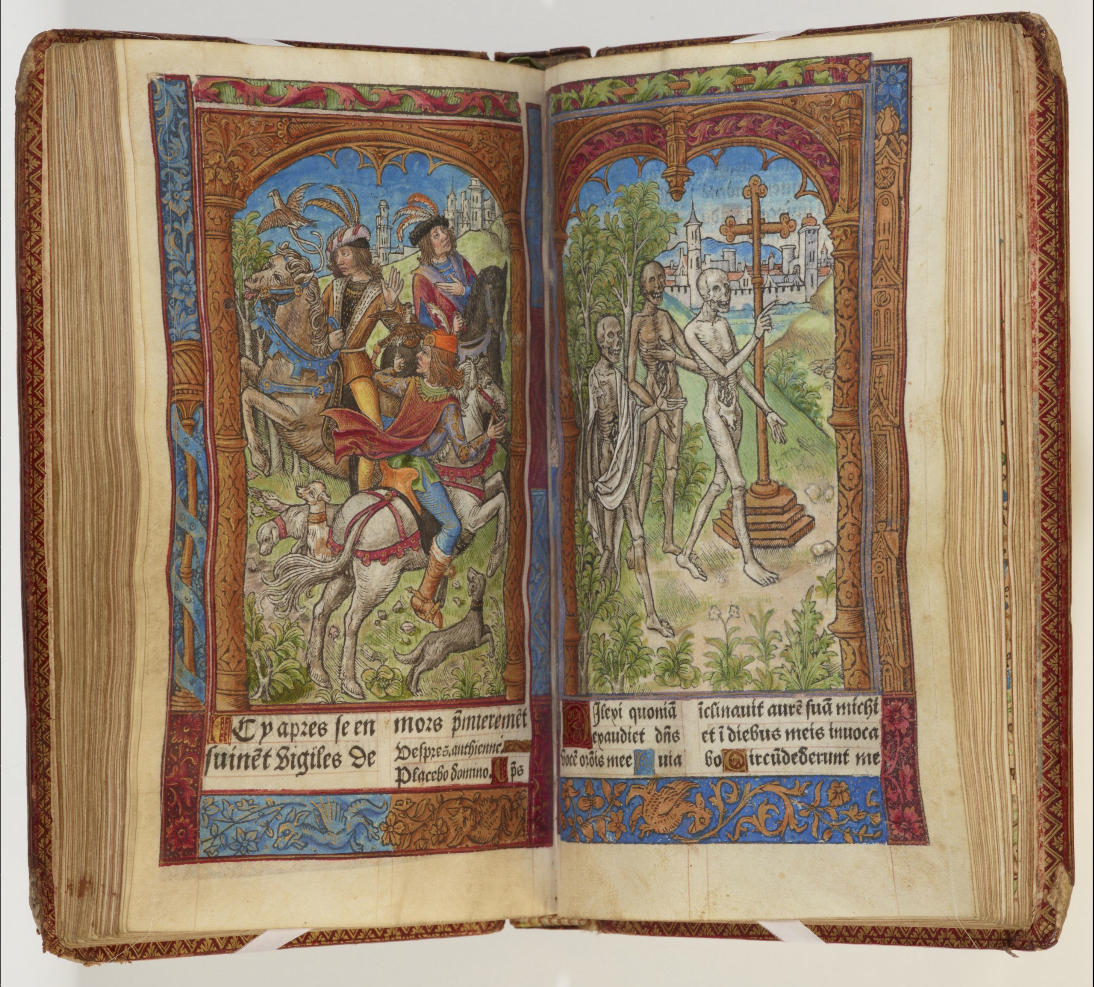 Cy apres se en
suinēt Vigiles de
mors p̄mieremēt
Vespres. anthienne
Placebo domino. p̄s
Dilexi quoniā
exaudiet dn̄s
vocē or̄ōis mee Quia
īclinauit aurē suā michi
et ī diebus meis inuoca
bo Circūdederunt me